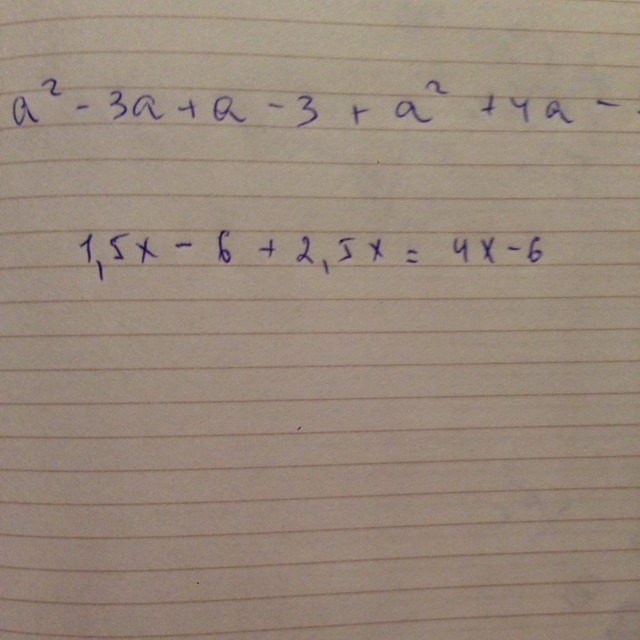 a² - 3a + a - 3 + a² + 4a -
1,5x - 6 + 2,5x = 4x - 6